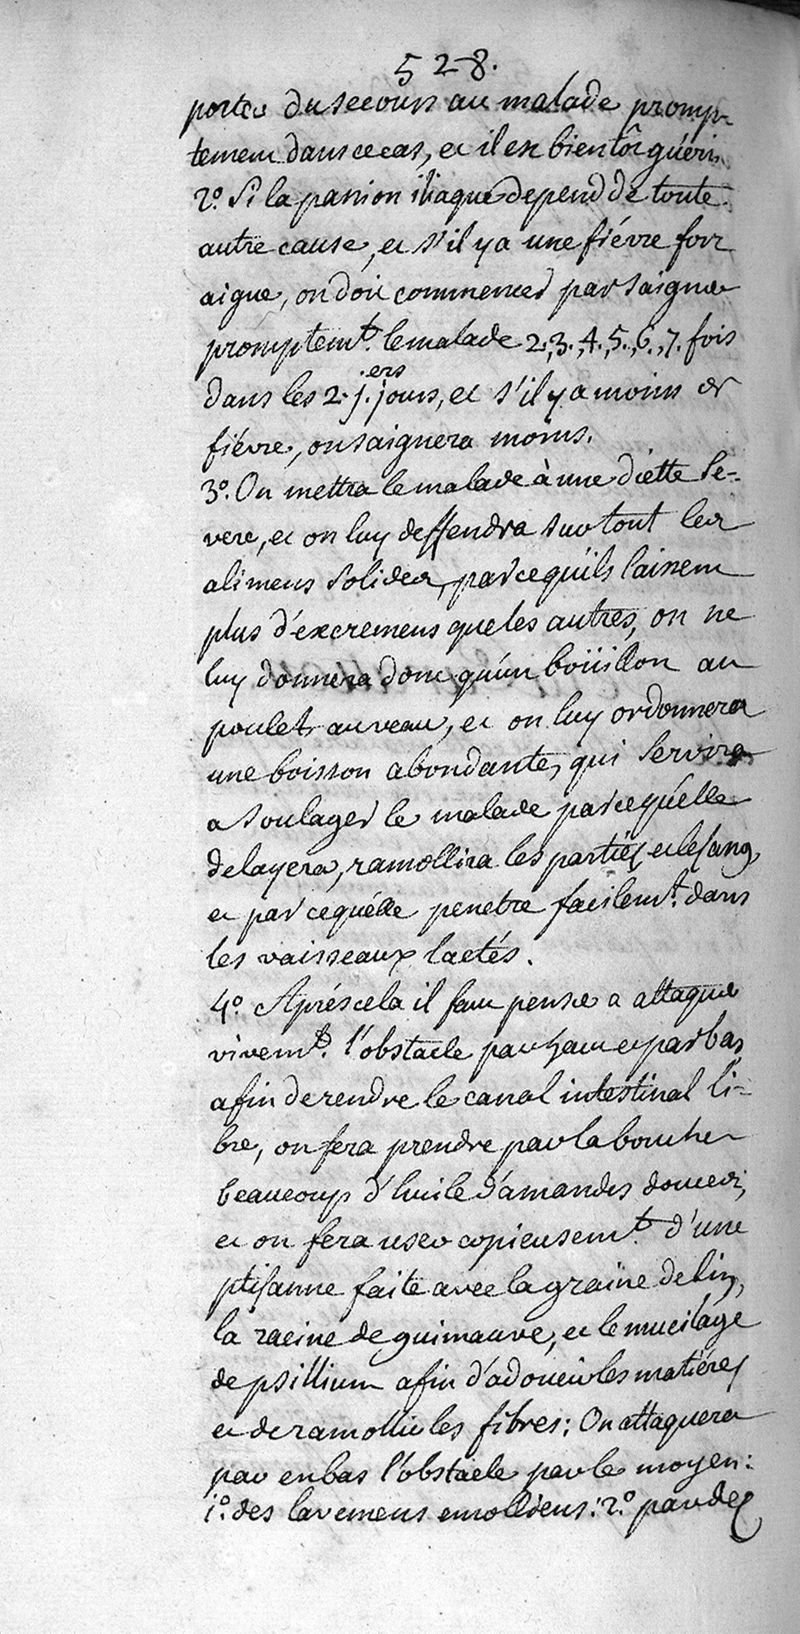 528.
porter du secours au malade promp-
tement dans ce cas, et il est bientôt guéri.
2.° Si la passion iliaque depend de toute
autre cause, et s'il y a une fiévre fort
aigue, on doit commencer par saigner
promptem.t le malade 2., 3., 4., 5., 6., 7. fois
dans les 2. p.iers jours, et s'il y a moins de
fiévre, on saignera moins.
3.° On mettra le malade à une diette se-
vere, et on luy deffendra surtout les
alimens solides, parcequ'ils laissent
plus d'excremens que les autres, on ne
luy donnera donc qu'un boüillon au
poulet, au veau, et on luy ordonnera
une boisson abondante, qui servira
a soulager le malade parcequ'elle
delayera, ramollira les parties et le sang,
et parcequ'elle penetre facilem.t dans
les vaisseaux lactés.
4.° Aprés cela il faut penser a attaquer
vivem.t l'obstacle par haut et par bas,
afin de rendre le canal intestinal li-
bre, on fera prendre par la bouche
beaucoup d'huile d'amandes douces,
et on fera user copieusem.t d'une
ptisanne faite avec la graine de lin,
la racine de guimauve, et le mucilage
de psillium afin d'adoucir les matiéres
et de ramollir les fibres: On attaquera
par en bas l'obstacle par le moyen:
1.° des lavemens emolliens: 2.° par des